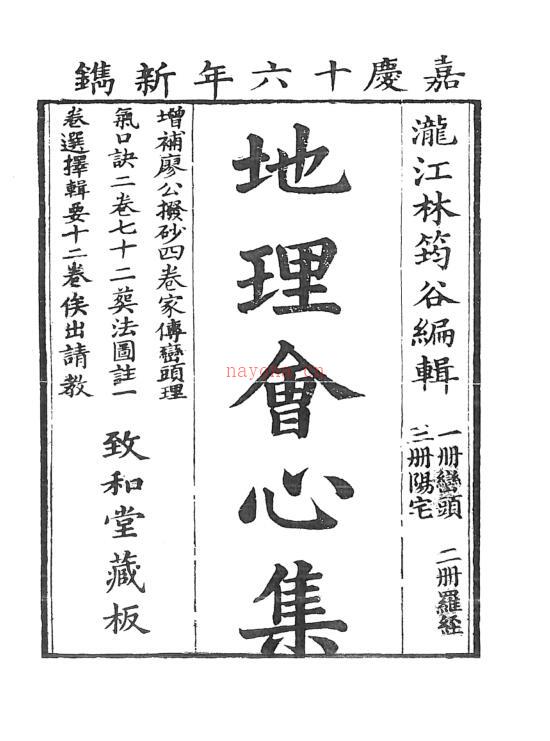 嘉慶十六年新鐫
瀧江林筠谷編輯
一册巒頭
三册陽宅
二册羅經
地理會心集
增補廖公撥砂四卷家傳巒頭理
氣口訣二卷七十二葬法圖註一
卷選擇輯要十二卷俟出請教
致和堂藏板